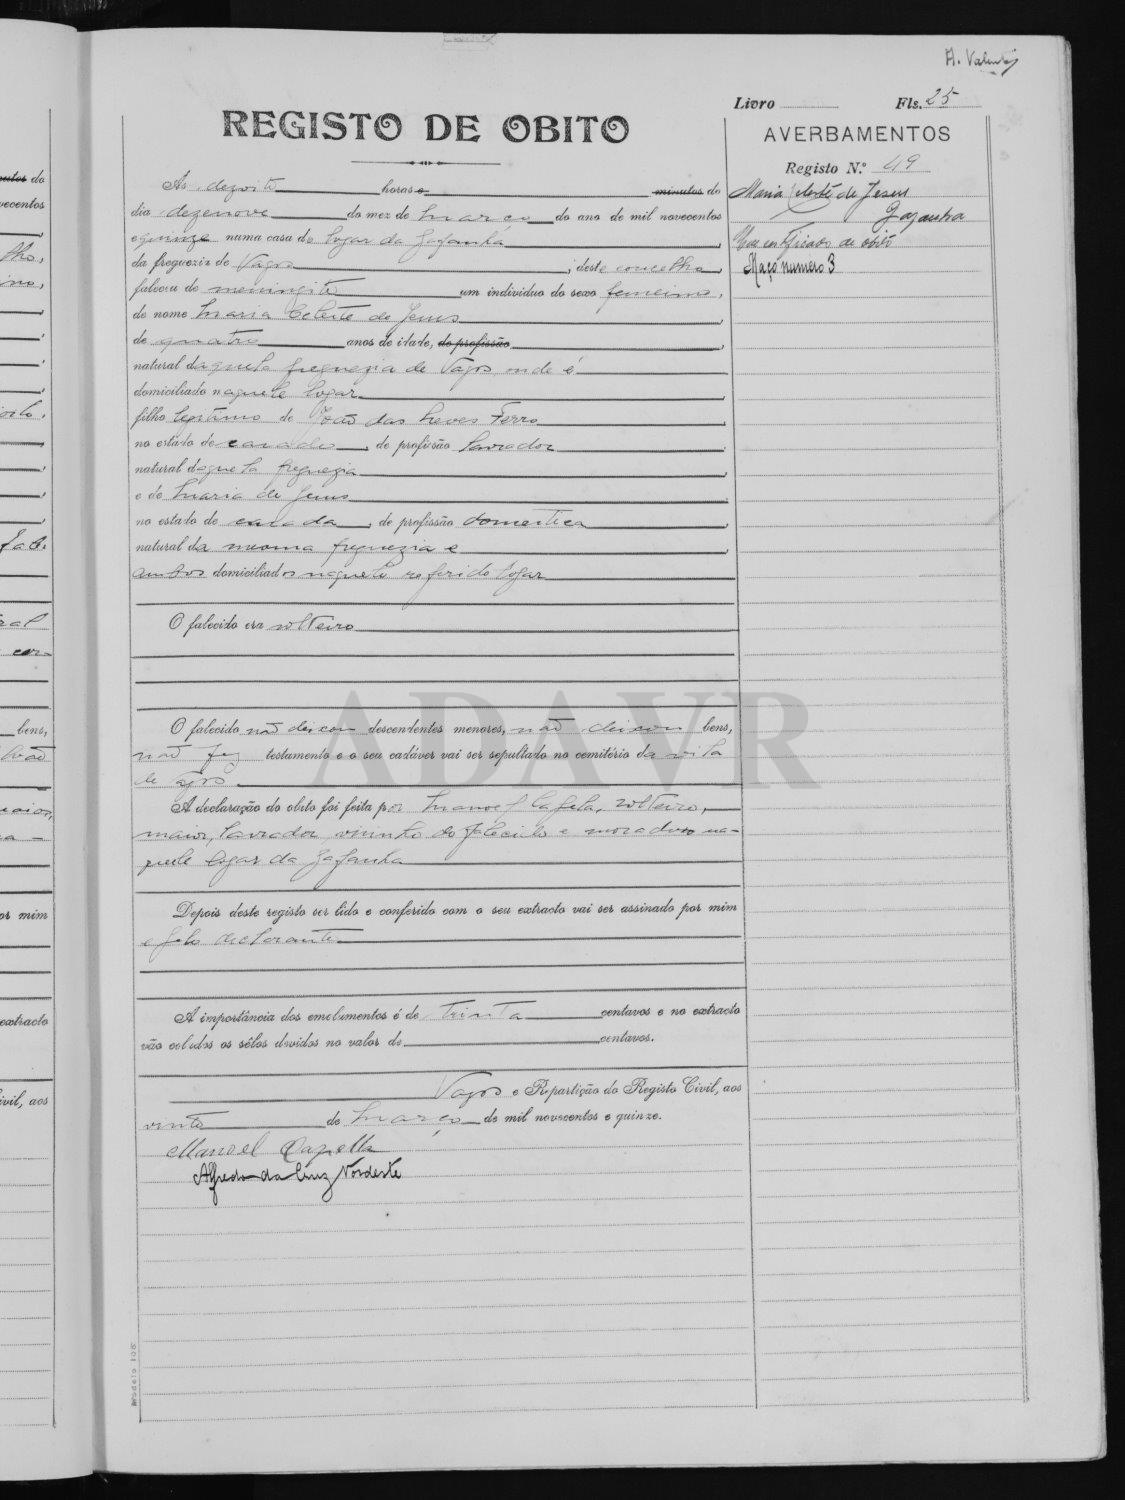 A. Valente
Livro Fls. 25
REGISTO DE OBITO
AVERBAMENTOS
Registo N.º 49
Ás dezoito horas e minutos do
dia dezenove do mez de Março do ano de mil novecentos
e quinze numa casa do logar da Gafanha,
da freguezia de Vagos, deste concelho,
faleceu de meningite um individuo do sexo femenino,
de nome Maria Celeste de Jesus,
de quatro anos de idade, de profissão,
natural daquela freguezia de Vagos onde é
domiciliado naquele logar,
filho legitimo de João das Neves Ferro,
no estado de casado, de profissão lavrador
natural daquela freguezia
e de Maria de Jesus,
no estado de casada, de profissão domestica,
natural da mesma freguezia e,
ambos domiciliados naquele referido logar
O falecido era solteiro
O falecido não deixou descendentes menores, não deixou bens,
não fez testamento e o seu cadáver vai ser sepultado no cemitério da vila
de Vagos
A declaração do obito foi feita por Manoel Capela, solteiro,
maior, lavrador visinho do falecido e morador na-
quele logar da Gafanha
Depois deste registo ser lido e conferido com o seu extracto vai ser assinado por mim
e pelo declarante
A importância dos emolumentos é de trinta centavos e no extracto
vão colados os sêlos devidos no valor de centavos.
Vagos e Repartição do Registo Civil, aos
vinte de Março de mil novecentos e quinze.
Manoel Capella
Alfredo da Cruz Nordeste
Maria Celeste de Jesus
Gafanha
certificado de obito
Maço numero 3
Modelo 108
ADAVR
minutos do
novecentos
bens,
por mim
extracto
Civil, aos